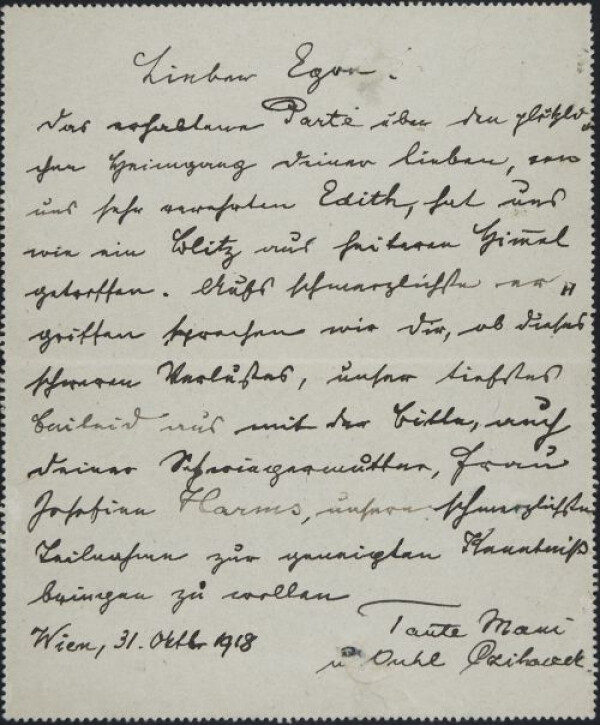 Lieber Egon!
Das erhaltene Parte über den plötzli
chen Heimgang deiner lieben, von
uns sehr verehrten Edith, hat uns
wie ein Blitz aus heiteren Himmel
getroffen. Aufs schmerzlichste er„
griffen sprechen wir dir, ob dieses
schweren Verlustes, unser tiefstes
Beileid aus mit der Bitte, auch
deiner Schwiegermutter, Frau
Josefine Harms, unsere schmerzlichste
Teilnahme zur geneigten Kenntniß
bringen zu wollen
Wien, 31. Oktbr 1918
Tante Mani
u Onkl